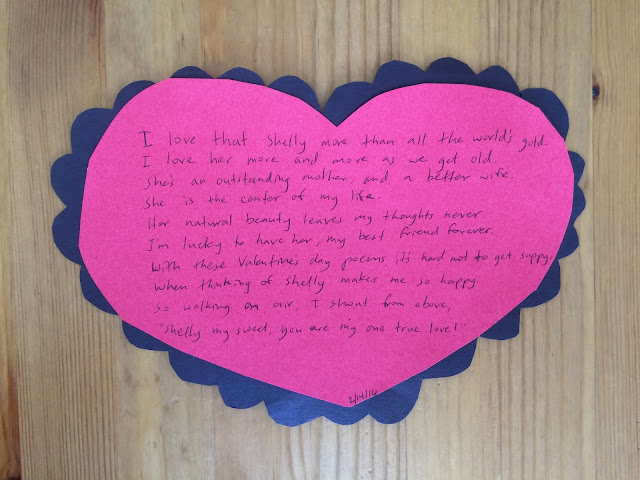 I love that Shelly more than all the world's gold.
I love her more and more as we get old.
She's an outstanding mother, and a better wife.
She is the center of my life.
Her natural beauty leaves my thoughts never
I'm lucky to have her, my best friend forever.
With these Valentine's day poems it's hard not to get sappy.
When thinking of Shelly makes me so happy.
So walking on air, I shout from above,
"Shelly my sweet, you are my one true love!"
2/14/16